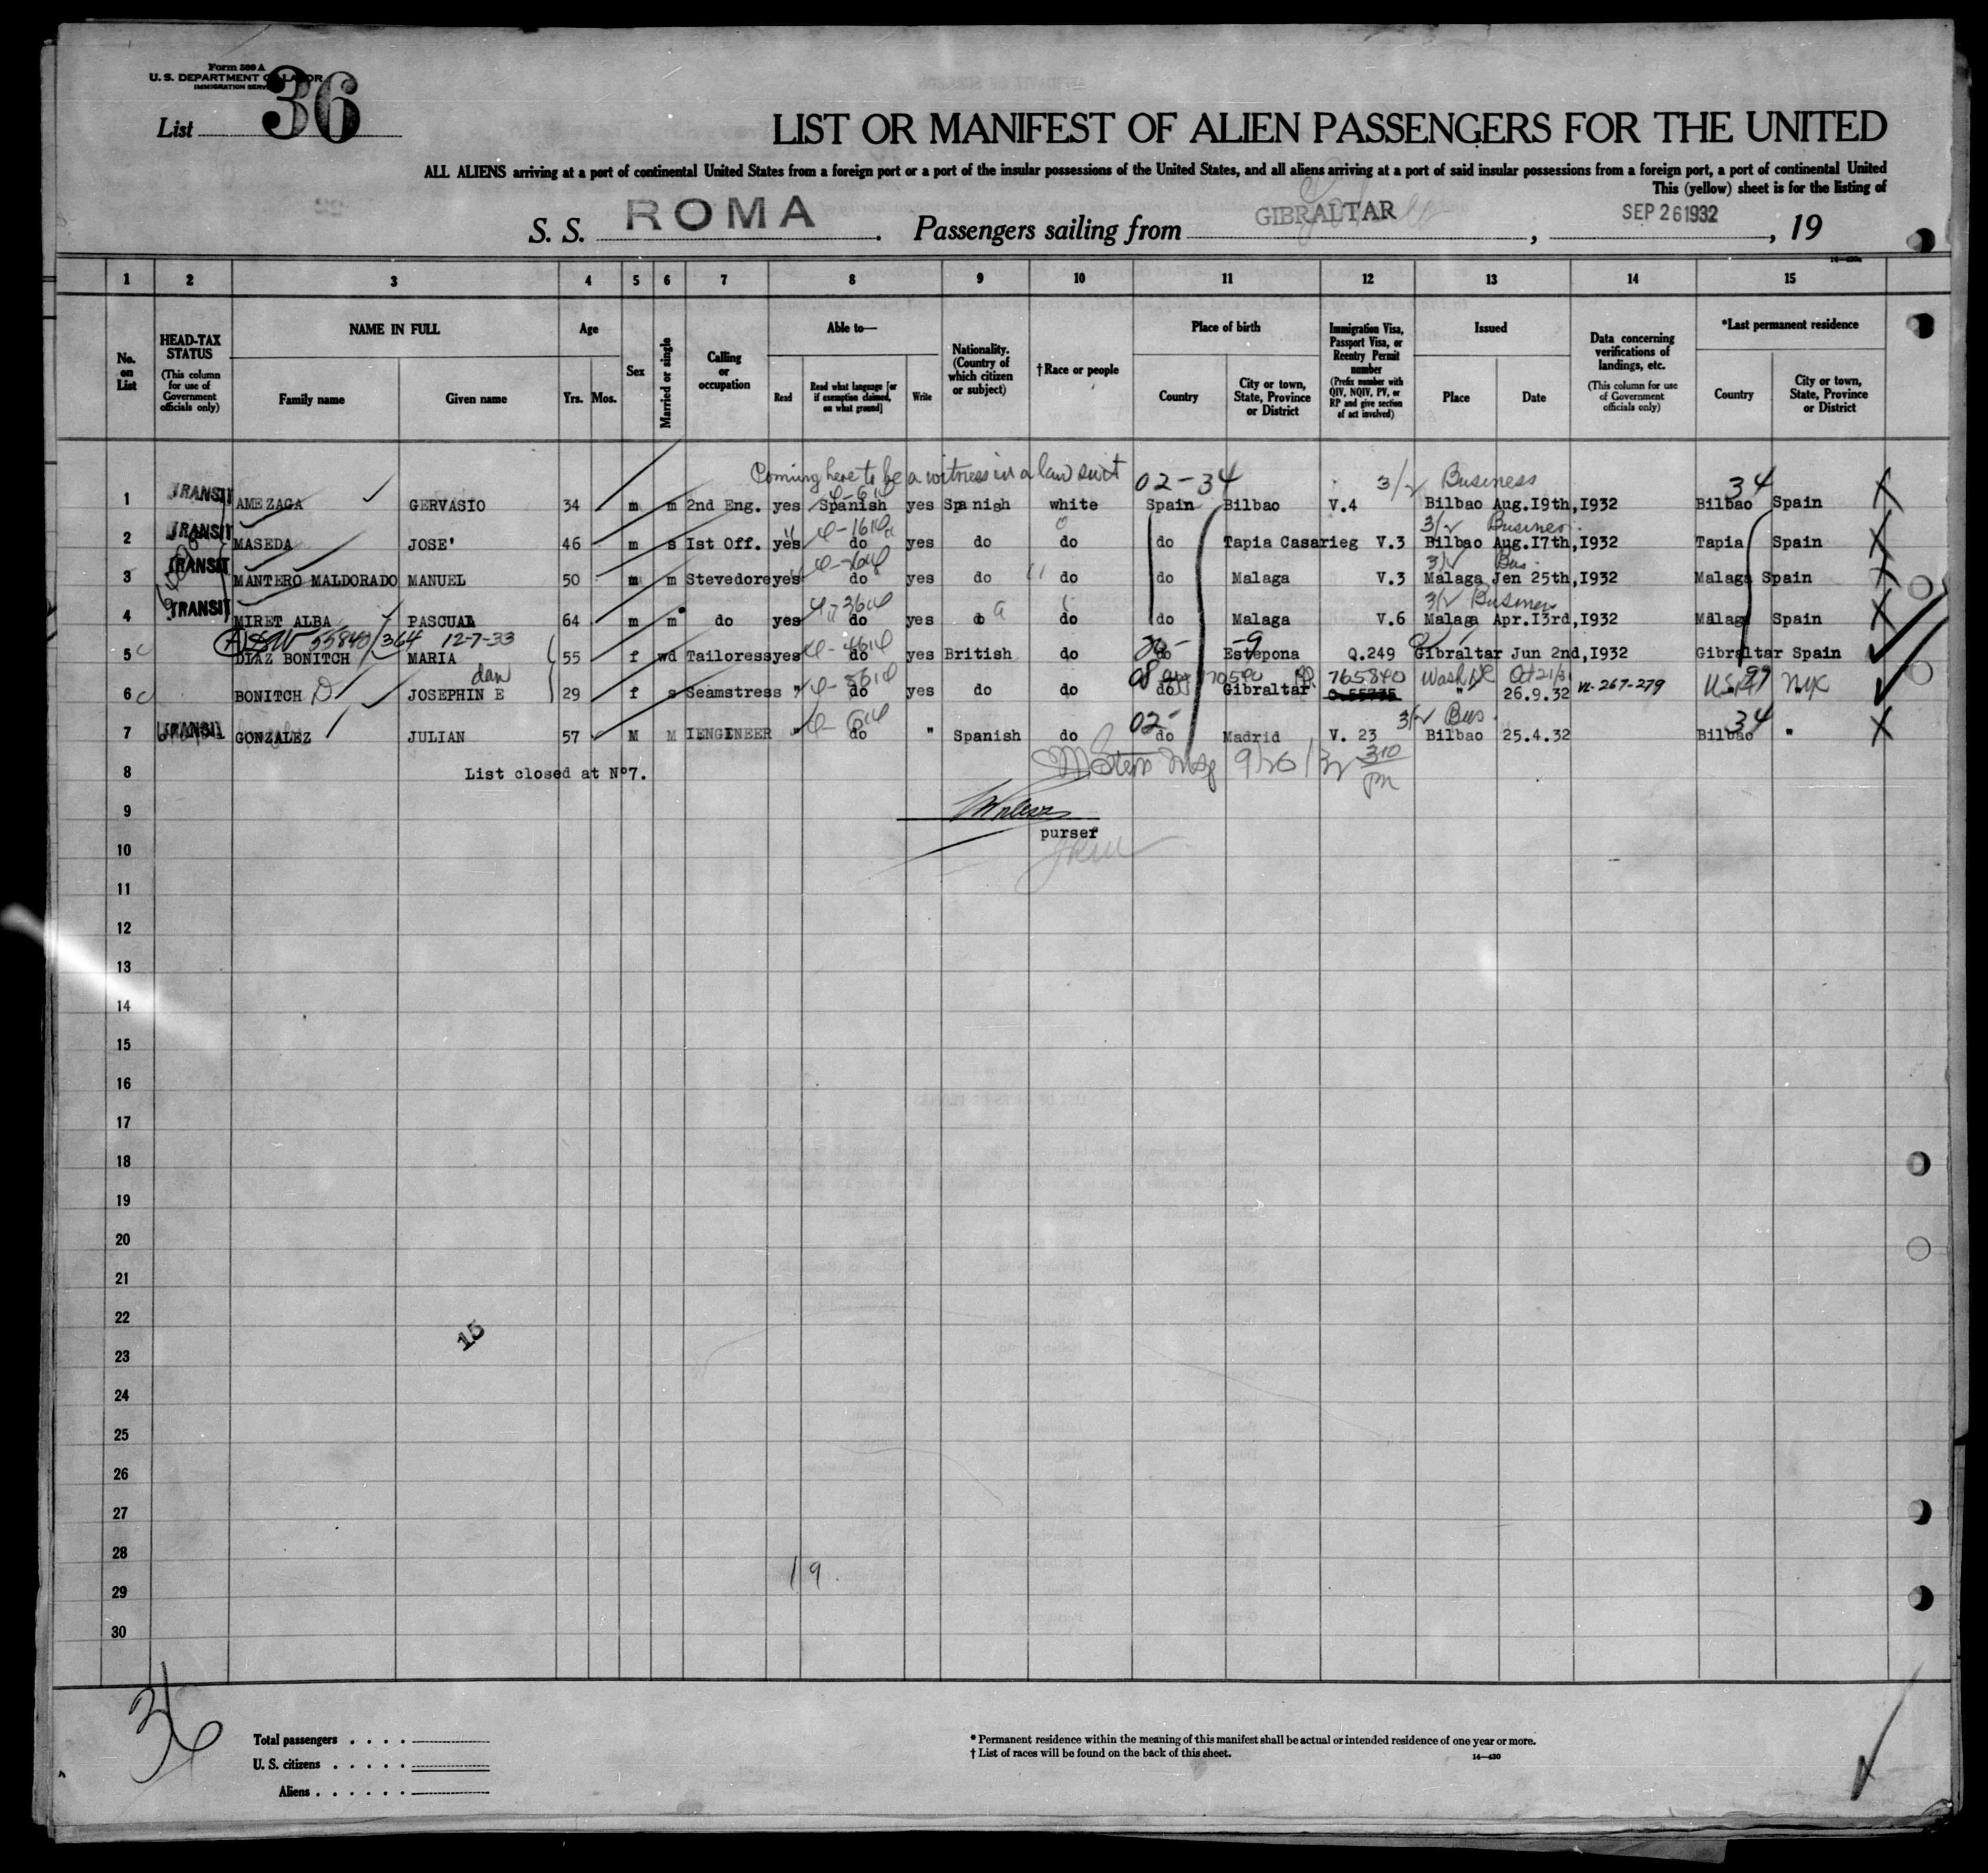 Form 500 A
U. S. DEPARTMENT OF LABOR
IMMIGRATION SERVICE
List 36
LIST OR MANIFEST OF ALIEN PASSENGERS FOR THE UNITED
ALL ALIENS arriving at a port of continental United States from a foreign port or a port of the insular possessions of the United States, and all aliens arriving at a port of said insular possessions from a foreign port, a port of continental United
This (yellow) sheet is for the listing of
S. S. ROMA Passengers sailing from GIBRALTAR, SEP 26 1932, 19
1 2 3 4 5 6 7 8 9 10 11 12 13 14 15
No. on List
HEAD-TAX STATUS (This column for use of Government officials only)
NAME IN FULL
Family name Given name
Age
Yrs. Mos.
Sex
Married or single
Calling or occupation
Able to—
Read
Read what language [or if exemption claimed, on what ground]
Write
Nationality. (Country of which citizen or subject)
†Race or people
Place of birth
Country
City or town, State, Province or District
Immigration Visa, Passport Visa, or Reentry Permit number (Prefix number with QIV, NQIV, PV, or RP and give section of act involved)
Issued
Place Date
Data concerning verifications of landings, etc. (This column for use of Government officials only)
*Last permanent residence
Country
City or town, State, Province or District
Coming here to be a witness in a law suit 02-34 3/2 Business 34
1 TRANSIT AMEZAGA GERVASIO 34 m m 2nd Eng. yes Spanish yes Spanish white Spain Bilbao V.4 Bilbao Aug.I9th,I932 Bilbao Spain
3/2 Business
2 TRANSIT MASEDA JOSE' 46 m s Ist Off. yes do yes do do do Tapia Casarieg V.3 Bilbao Aug.I7th,I932 Tapia Spain
3/2 Bus
3 TRANSIT MANTERO MALDORADO MANUEL 50 m m Stevedore yes do yes do do do Malaga V.3 Malaga Jen 25th,I932 Malaga Spain
3/2 Business
4 TRANSIT MIRET ALBA PASCUAL 64 m m do yes do yes do do do Malaga V.6 Malaga Apr.I3rd,I932 Malaga Spain
55840/364 12-7-33
5 DIAZ BONITCH MARIA 55 f wd Tailoress yes do yes British do do Estepona Q.249 Gibraltar Jun 2nd,I932 Gibraltar Spain
dau 765840 Wash DC Oct 21/31 97
6 BONITCH D JOSEPHIN E 29 f s Seamstress " do yes do do do Gibraltar " 26.9.32 VL-267-279 USA NYC
02- 3/2 Bus. 34
7 TRANSIT GONZALEZ JULIAN 57 M M IENGINEER " do " Spanish do do Madrid V. 23 Bilbao 25.4.32 Bilbao "
8 List closed at Nº7. 9/26/32 3 10 pm
9
purser
10
11
12
13
14
15
16
17
18
19
20
21
22
15
23
24
25
26
27
28
19
29
30
36
Total passengers . . . .
U. S. citizens . . . . .
Aliens . . . . . .
* Permanent residence within the meaning of this manifest shall be actual or intended residence of one year or more.
† List of races will be found on the back of this sheet.
14—430